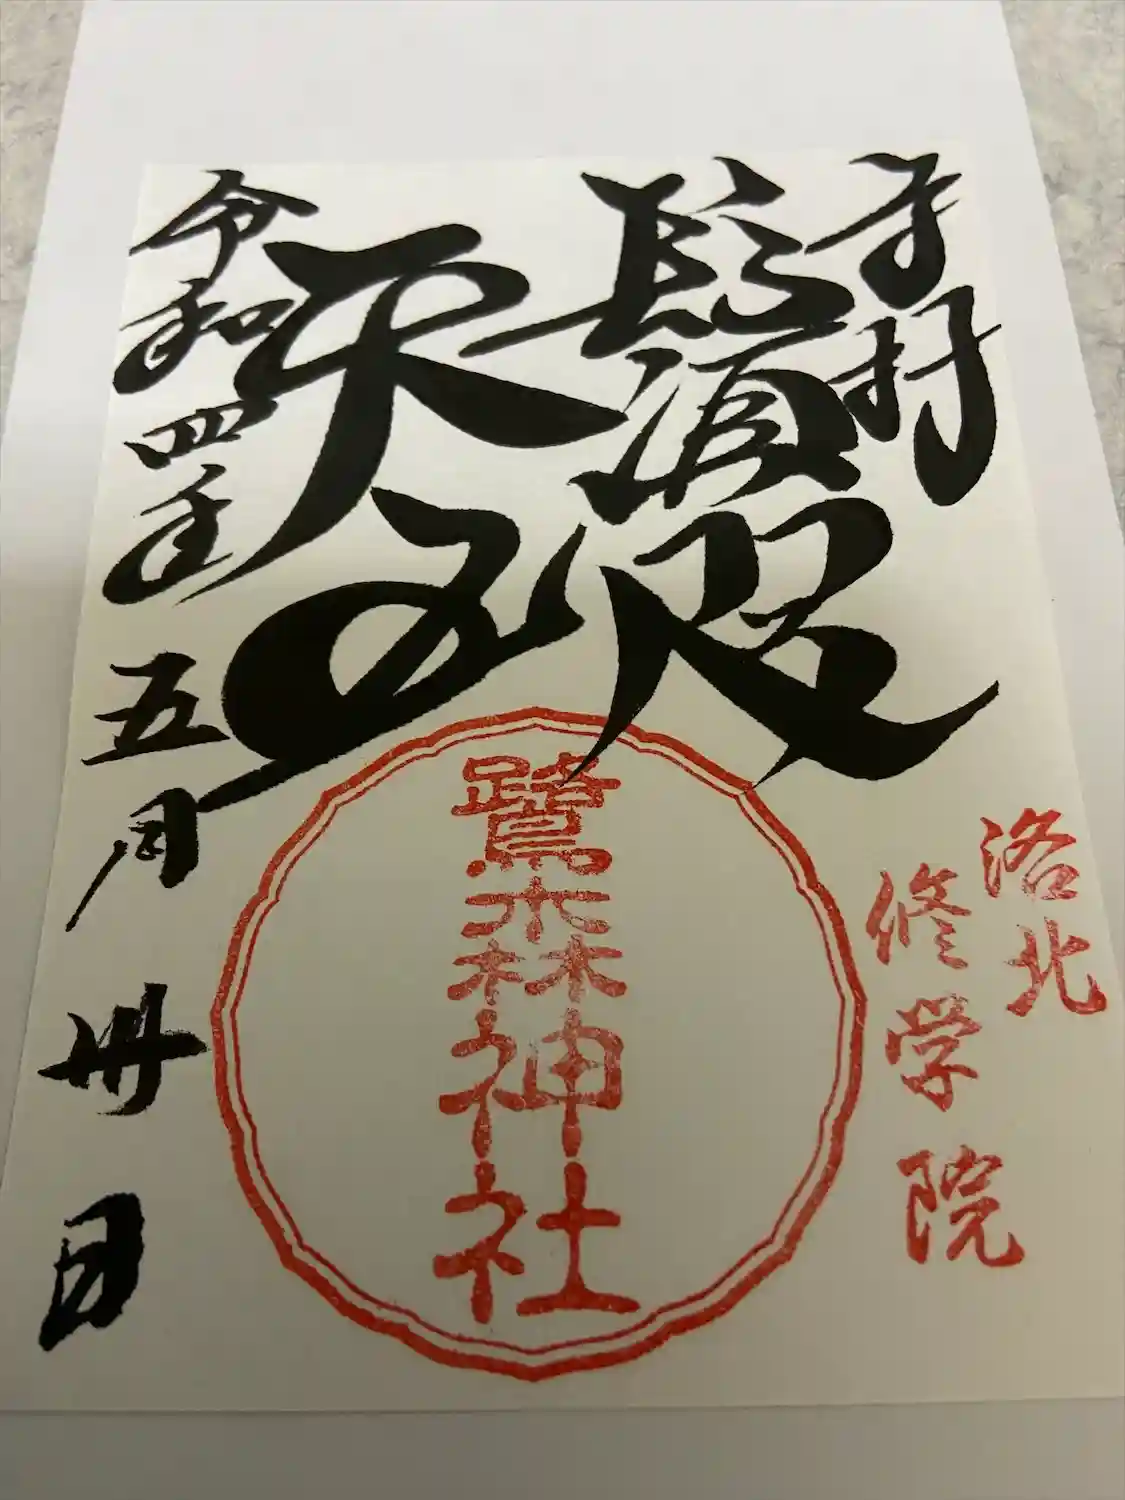 奉拝
鬚咒
天王
令和四年五月卅日
洛北
修学院
鷺森神社